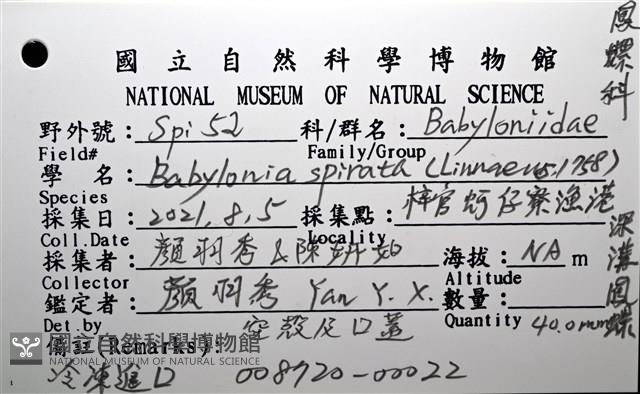 鳳螺科
國立自然科學博物館
NATIONAL MUSEUM OF NATURAL SCIENCE
野外號：Spi 52 科/群名：Babyloniidae
Field# Family/Group
學 名：Babylonia spirata (Linnaeus, 1758)
Species
採集日：2021.8.5 採集點：梓官蚵仔寮漁港
Coll.Date Locality
採集者：顏羽秀&陳 海拔：NA m
Collector Altitude
鑑定者：顏羽秀 Yan Y. X. 數量：
Det.by Quantity 40.0mm
深溝鳳螺
空殼及口蓋
備註(Remarks)：
國立自然科學博物館
NATIONAL MUSEUM OF NATURAL SCIENCE
冷凍進口 008920-00022